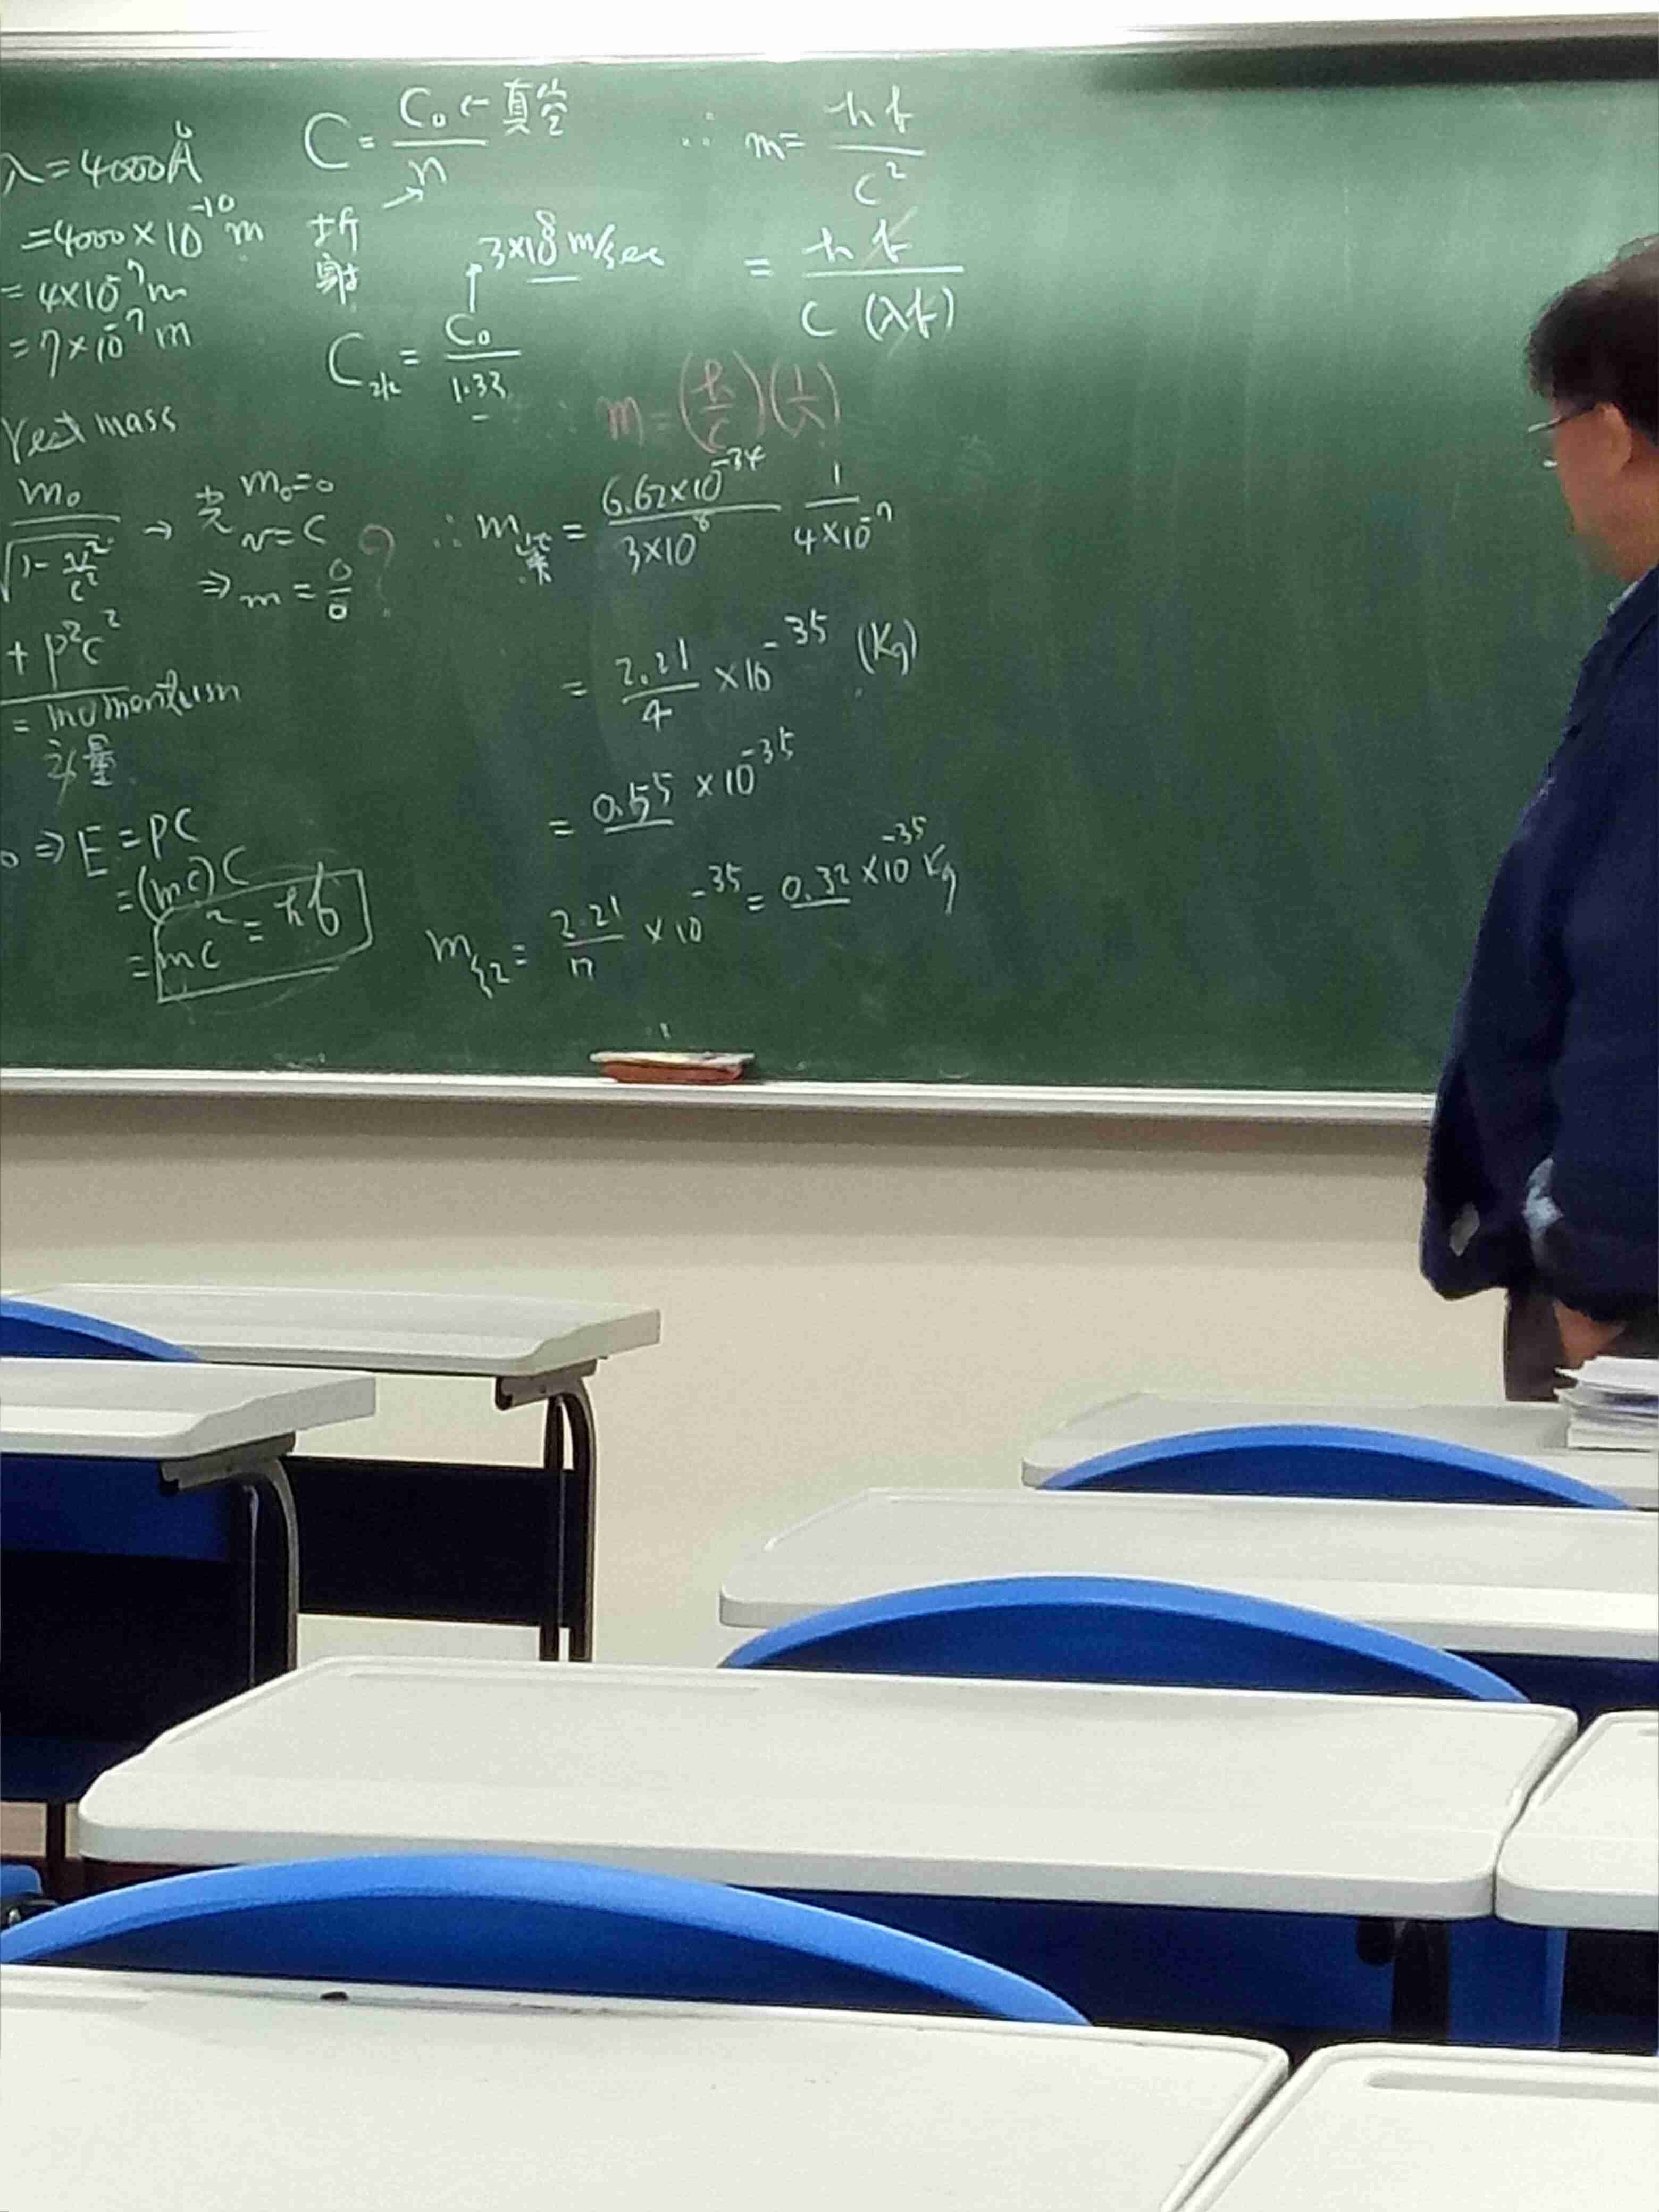 λ = 4000Å
= 4000 × 10⁻¹⁰ m
= 4×10⁻⁷ m
= 7×10⁻⁷ m
rest mass
m₀
√1 - v²/c² → 光 m₀=0
v=c
⇒ m = 0/0 ?
+ p²c²
= momentum
动量
0 ⇒ E = PC
= (mc)C
= mc² = hf
C = C₀ ← 真空
n
折射
3×10⁸ m/sec
C水 = C₀/1.33
∴ m = hf/c²
= hf/C (λf)
m = (h/c)(1/λ)
∴ m紫 = 6.62×10⁻³⁴/3×10⁸ 1/4×10⁻⁷
= 2.21/4 ×10⁻³⁵ (Kg)
= 0.55 × 10⁻³⁵
m红 = 2.21/7 × 10⁻³⁵ = 0.32 ×10⁻³⁵ Kg